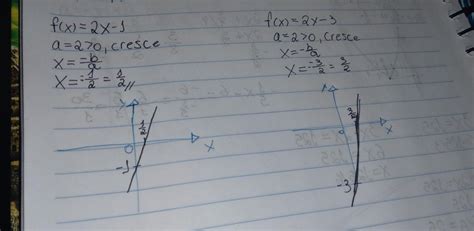 f(x)=2x-1
a=2>0, cresce
x=-b/a
x=-1/2=1/2//
y
1/2
0
x
-1
f(x)=2x-3
a=2>0, cresce
x=-b/a
x=-3/2=3/2
3/2
x
-3